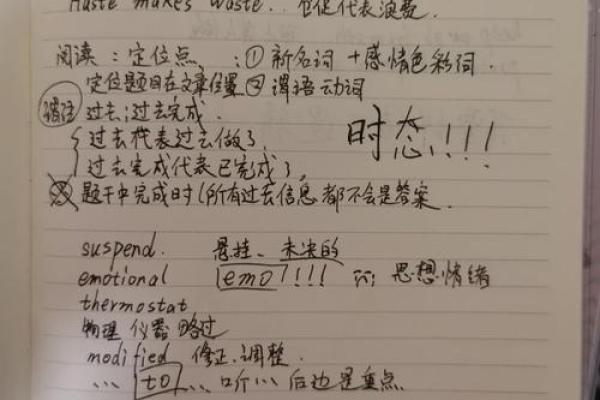 Haste makes waste.. 仓促代表浪费.
阅读：定位点 ：① 新名词 + 感情色彩词.
定位题目在文章位置 ② 谓语动词
语法 过去；过去完成.
过去代表过去做了
过去完成代表已完成了,
时态,!!!
题干中完成时(所有过去信息都不会是答案.
suspend. 悬挂、未决的
emotional emo!!!! 思想情绪
thermostat
物理 仪器 略过
modified 修正.调整.
... to ... 听... 后边是重点.